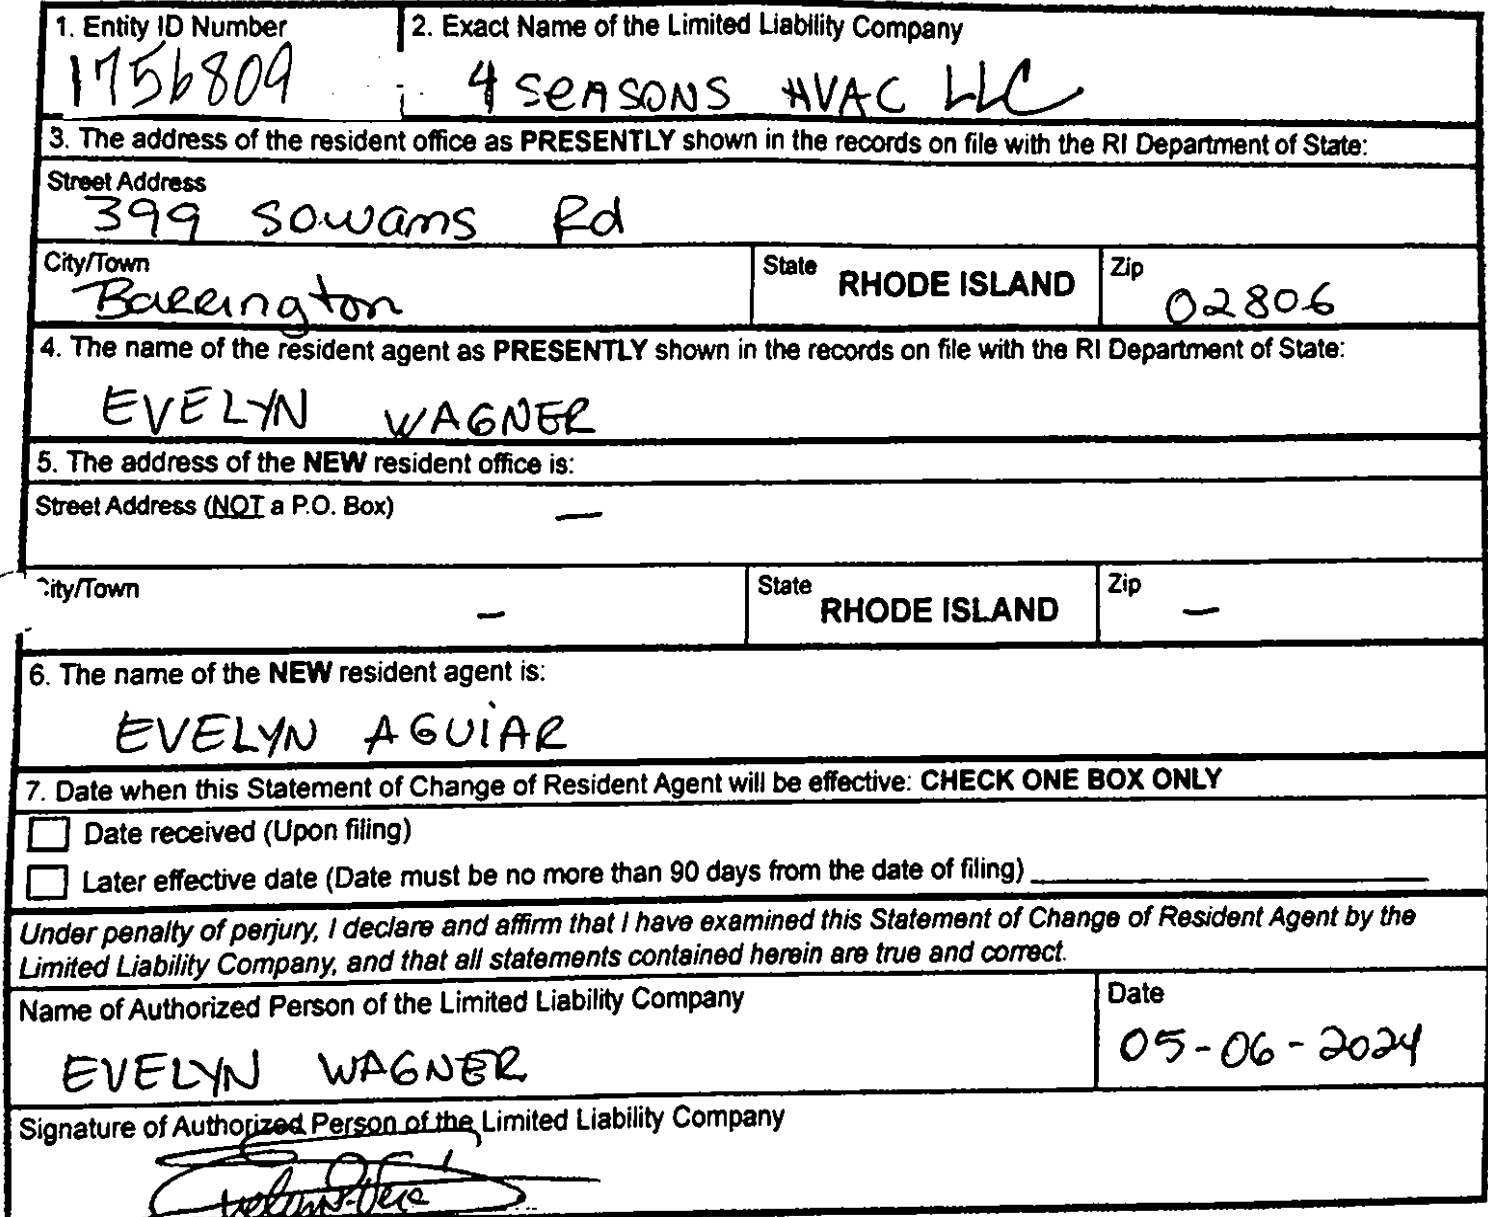 1. Entity ID Number
2. Exact Name of the Limited Liability Company
1756809
4 SEASONS HVAC LLC
3. The address of the resident office as PRESENTLY shown in the records on file with the RI Department of State:
Street Address
399 Sowams Rd
City/Town
Barrington
State RHODE ISLAND
Zip
02806
4. The name of the resident agent as PRESENTLY shown in the records on file with the RI Department of State:
EVELYN WAGNER
5. The address of the NEW resident office is:
Street Address (NOT a P.O. Box)
—
City/Town
—
State RHODE ISLAND
Zip
—
6. The name of the NEW resident agent is:
EVELYN AGUIAR
7. Date when this Statement of Change of Resident Agent will be effective: CHECK ONE BOX ONLY
Date received (Upon filing)
Later effective date (Date must be no more than 90 days from the date of filing)
Under penalty of perjury, I declare and affirm that I have examined this Statement of Change of Resident Agent by the
Limited Liability Company, and that all statements contained herein are true and correct.
Name of Authorized Person of the Limited Liability Company
EVELYN WAGNER
Date
05-06-2024
Signature of Authorized Person of the Limited Liability Company